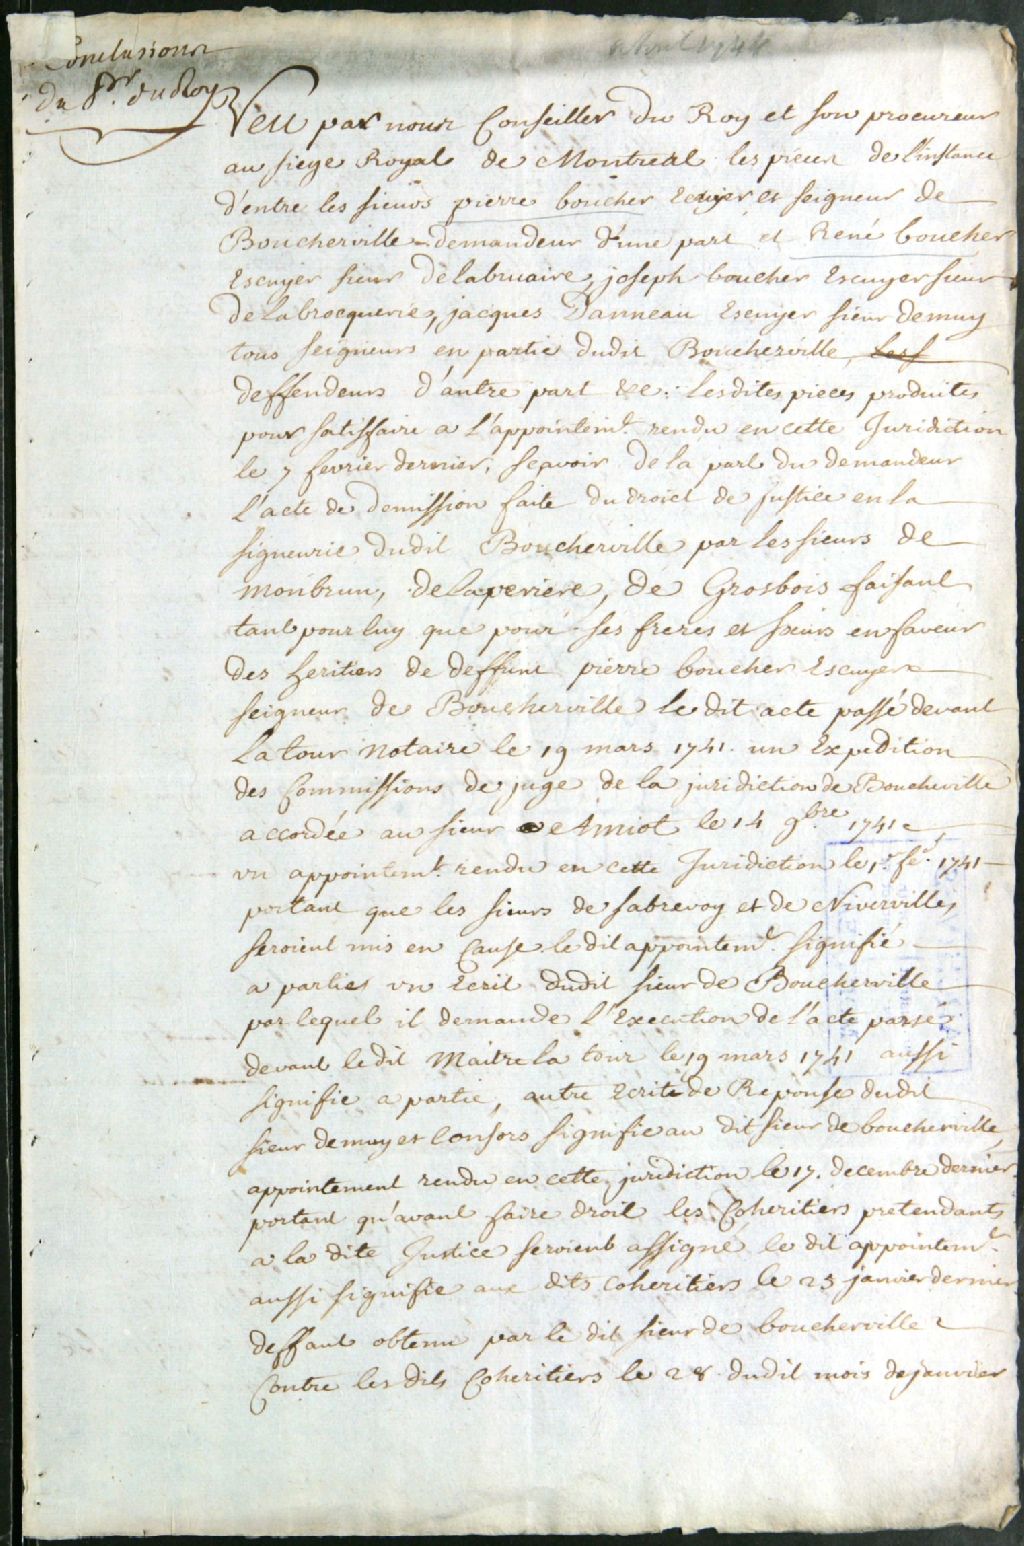 Conclusions
du Pr. du Roy
avril 1744
Veu par nous Conseiller du Roy et son procureur
au siege Royal de Montreal les pieces de l'instance
d'entre les sieurs pierre boucher Ecuyer et seigneur de
Boucherville demandeur d'une part et René boucher
Escuyer sieur delabruaire, joseph boucher Escuyer sieur
de Labrocquerie, jacques Danneau Escuyer sieur demuy
tous seigneurs en partie dudit Boucherville,
deffendeurs d'autre part &c. Lesdites pieces produites
pour satisfaire a l'appointemt. rendu en cette Juridiction
le 7 fevrier dernier, sçavoir de la part du demandeur
L'acte de demission faite du droict de justice en la
signeurie dudit Boucherville par les sieurs de
monbrun, de Laperiere, de Grosbois faisant
tant pour luy que pour ses freres et sœurs en faveur
des heritiers de deffunt pierre boucher Escuyer
seigneur de Boucherville le dit acte passé devant
Latour Notaire le 19 mars 1741. un Expedition
des Commissions de juge de la juridiction de Boucherville
accordée au sieur Amiot le 14 9bre 1741
un appointemt. rendu en cette Juridiction le 1r. fe. 1741
portant que les sieurs de sabrevoy et de Niverville,
seroient mis en Cause le dit appointemt. signifié
a parties un Ecrit dudit sieur de Boucherville
par lequel il demande l'Execution de l'acte passé
devant le dit Maitre la tour le 19 mars 1741 aussi
signifie a partie, autre Ecrite de Reponse dudit
sieur demuy et Consors signifie au dit sieur de boucherville,
appointement rendu en cette juridiction le 17. decembre dernier
portant qu'avant faire droit les Coheritiers pretendants
a la dite Justice seroient assigné le dit appointemt.
aussi signifie aux dits coheritiers le 23 janvier dernier
deffaut obtenu par le dit sieur de boucherville
Contre les dits Coheritiers le 28 dudit mois de janvier